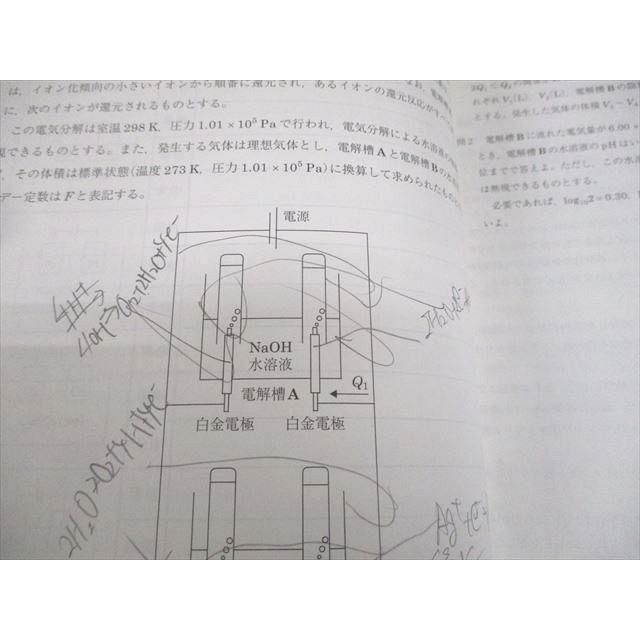 は，イオン化傾向の小さいイオンから順番に還元され，あるイオンの還元反応がすべ
に，次のイオンが還元されるものとする。
この電気分解は室温298 K，圧力1.01×10⁵ Paで行われ，電気分解による水溶液の
視できるものとする。また，発生する気体は理想気体とし，電解槽Aと電解槽Bの
，その体積は標準状態(温度273 K，圧力1.01×10⁵ Pa)に換算して求められたもの
デー定数はFと表記する。
電源
NaOH
水溶液
電解槽A
Q₁
白金電極
白金電極
4OH⁻→O₂+2H₂O+4e⁻
2H₂O→O₂+4H⁺+4e⁻
れぞれV₁(L)，V₂(L)，電解槽Bの
とする。発生した気体の体積V₁～V₄
問2 電解槽Bに流れた電気量が6.00×
とき，電解槽Bの水溶液のpHはい
位までで答えよ。ただし，この水
は無視できるものとする。
必要であれば，log₁₀2＝0.30，
いよ。